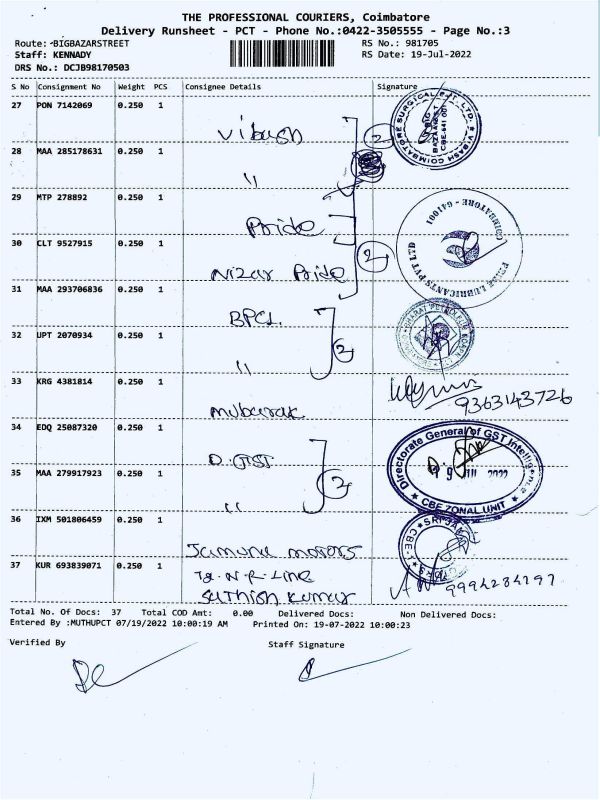 THE PROFESSIONAL COURIERS, Coimbatore
Delivery Runsheet - PCT - Phone No.:0422-3505555 - Page No.:3
Route: -BIGBAZARSTREET RS No.: 981705
Staff: KENNADY RS Date: 19-Jul-2022
DRS No.: DCJB98170503
S No Consignment No Weight PCS Consignee Details Signature
27 PON 7142069 0.250 1 Vibash 2
28 MAA 285178631 0.250 1 "
29 MTP 278892 0.250 1 Pride
30 CLT 9527915 0.250 1 Nizar Pride 2
31 MAA 293706836 0.250 1 BPCL
32 UPT 2070934 0.250 1 " 2
33 KRG 4381814 0.250 1 Mubarak 9363143726
34 EDQ 25087320 0.250 1 D.GST
35 MAA 279917923 0.250 1 " 2
36 IXM 501806459 0.250 1 Jamuna motors
37 KUR 693839071 0.250 1
Sathish Kumar
VIBASH COIMBATORE SURGICAL PVT. LTD.
CBE-641 001
PRIDE LUBRICANTS PVT LTD
COIMBATORE - 641001
Directorate General of GST Intelligence
CBE ZONAL UNIT
Total No. Of Docs: 37 Total COD Amt: 0.00 Delivered Docs: Non Delivered Docs:
Entered By :MUTHUPCT 07/19/2022 10:00:19 AM Printed On: 19-07-2022 10:00:23
Verified By Staff Signature